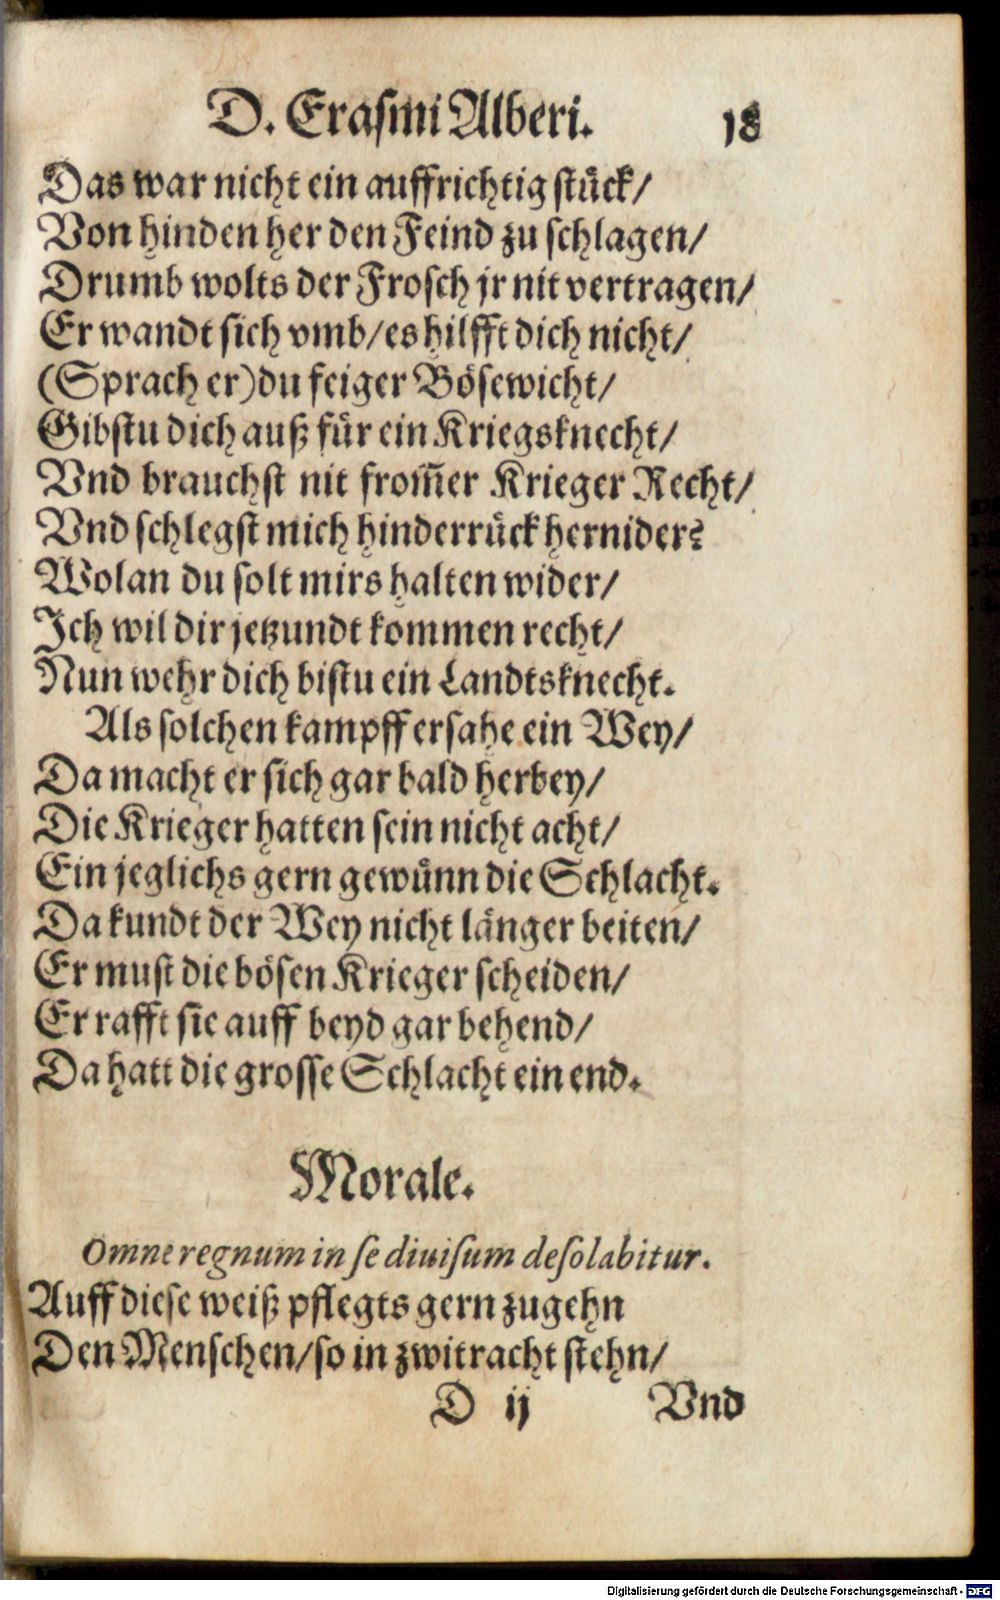 D. Erasmi Alberi. 18
Das war nicht ein auffrichtig stuͤck/
Von hinden her den Feind zu schlagen/
Drumb wolts der Frosch jr nit vertragen/
Er wandt sich vmb/es hilfft dich nicht/
(Sprach er)du feiger Boͤsewicht/
Gibstu dich auß fuͤr ein Kriegsknecht/
Vnd brauchst nit from̃er Krieger Recht/
Vnd schlegst mich hinderruͤck hernider?
Wolan du solt mirs halten wider/
Ich wil dir jetzundt kommen recht/
Nun wehr dich bistu ein Landtsknecht.
Als solchen kampff ersahe ein Wey/
Da macht er sich gar bald herbey/
Die Krieger hatten sein nicht acht/
Ein jeglichs gern gewuͤnn die Schlacht.
Da kundt der Wey nicht laͤnger beiten/
Er must die boͤsen Krieger scheiden/
Er rafft sie auff beyd gar behend/
Da hatt die grosse Schlacht ein end.
Morale.
Omne regnum in se diuisum desolabitur.
Auff diese weiß pflegts gern zugehn
Den Menschen/so in zwitracht stehn/
D ij Vnd
Digitalisierung gefördert durch die Deutsche Forschungsgemeinschaft - DFG